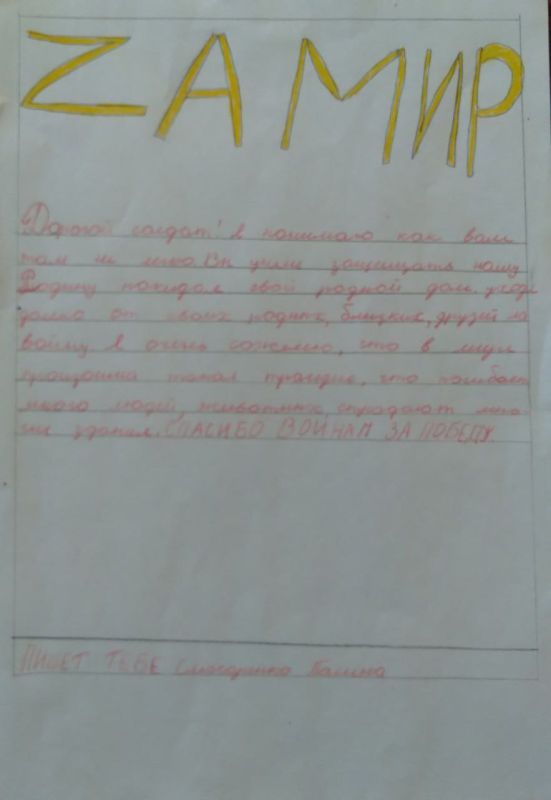 ZA МИР
Дорогой солдат! Я понимаю как вам
там не легко. Вы ушли защищать нашу
Родину покидая свой родной дом. уходя
далеко от своих родных, близких, друзей на
войну. Я очень сожалею, что в мире
произошла такая трагедия, что погибает
много людей, животных, страдают мно
гие здания. СПАСИБО ВОИНАМ ЗА ПОБЕДУ.
ПИШЕТ ТЕБЕ Слюсаренко Полина